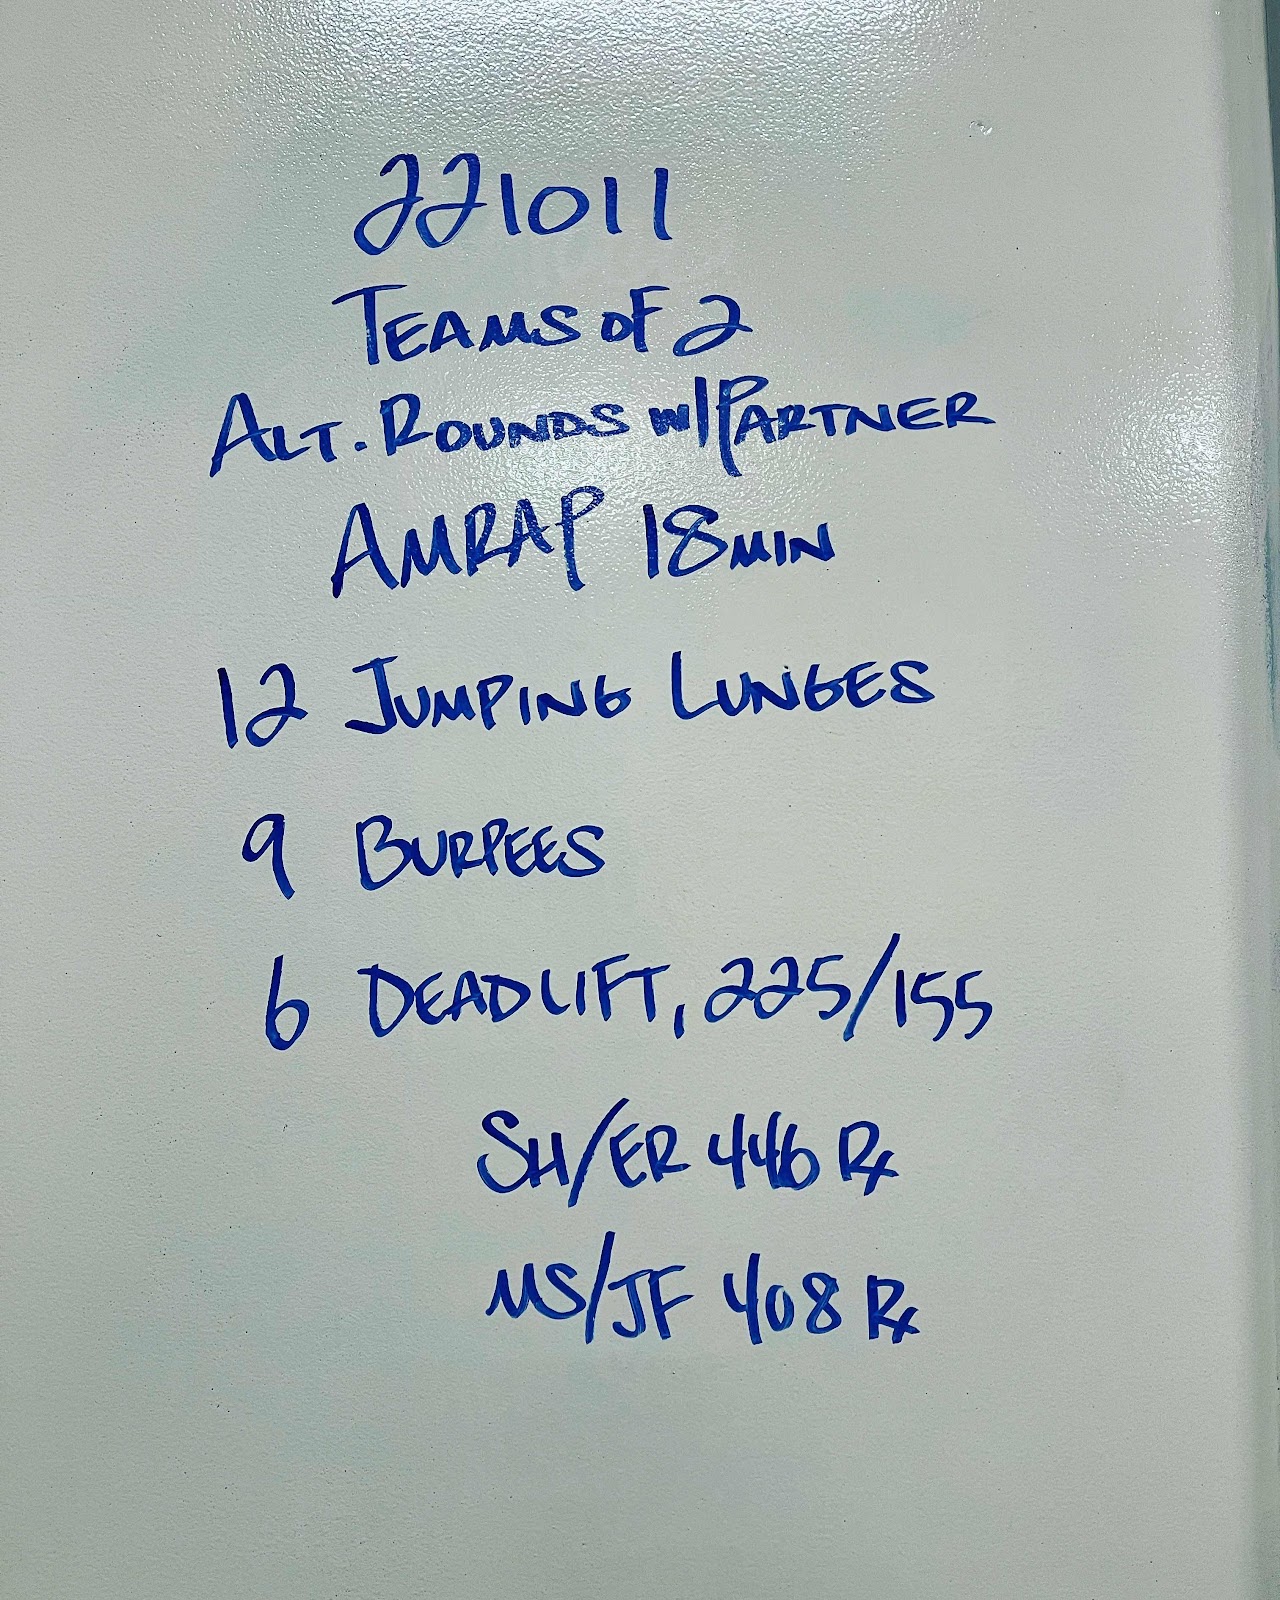 221011
TEAMS OF 2
ALT. ROUNDS W/PARTNER
AMRAP 18 MIN
12 JUMPING LUNGES
9 BURPEES
6 DEADLIFT, 225/155
SH/ER 446 Rx
MS/JF 408 Rx